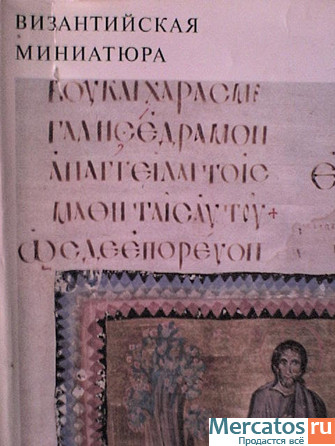 ВИЗАНТИЙСКАЯ
МИНИАТЮРА
ΒΟΥΚΑΙΧΑΡΑϹΜΕ
ΓΑΛΗϹΕΔΡΑΜΟΝ
ΑΠΑΓΓΕΙΛΑΙΤΟΙϹ
ΜΑΘΗΤΑΙϹΑΥΤΟΥ+
ΩϹΔΕΕΠΟΡΕΥΟΝ
Mercatos.ru
Продастся всё